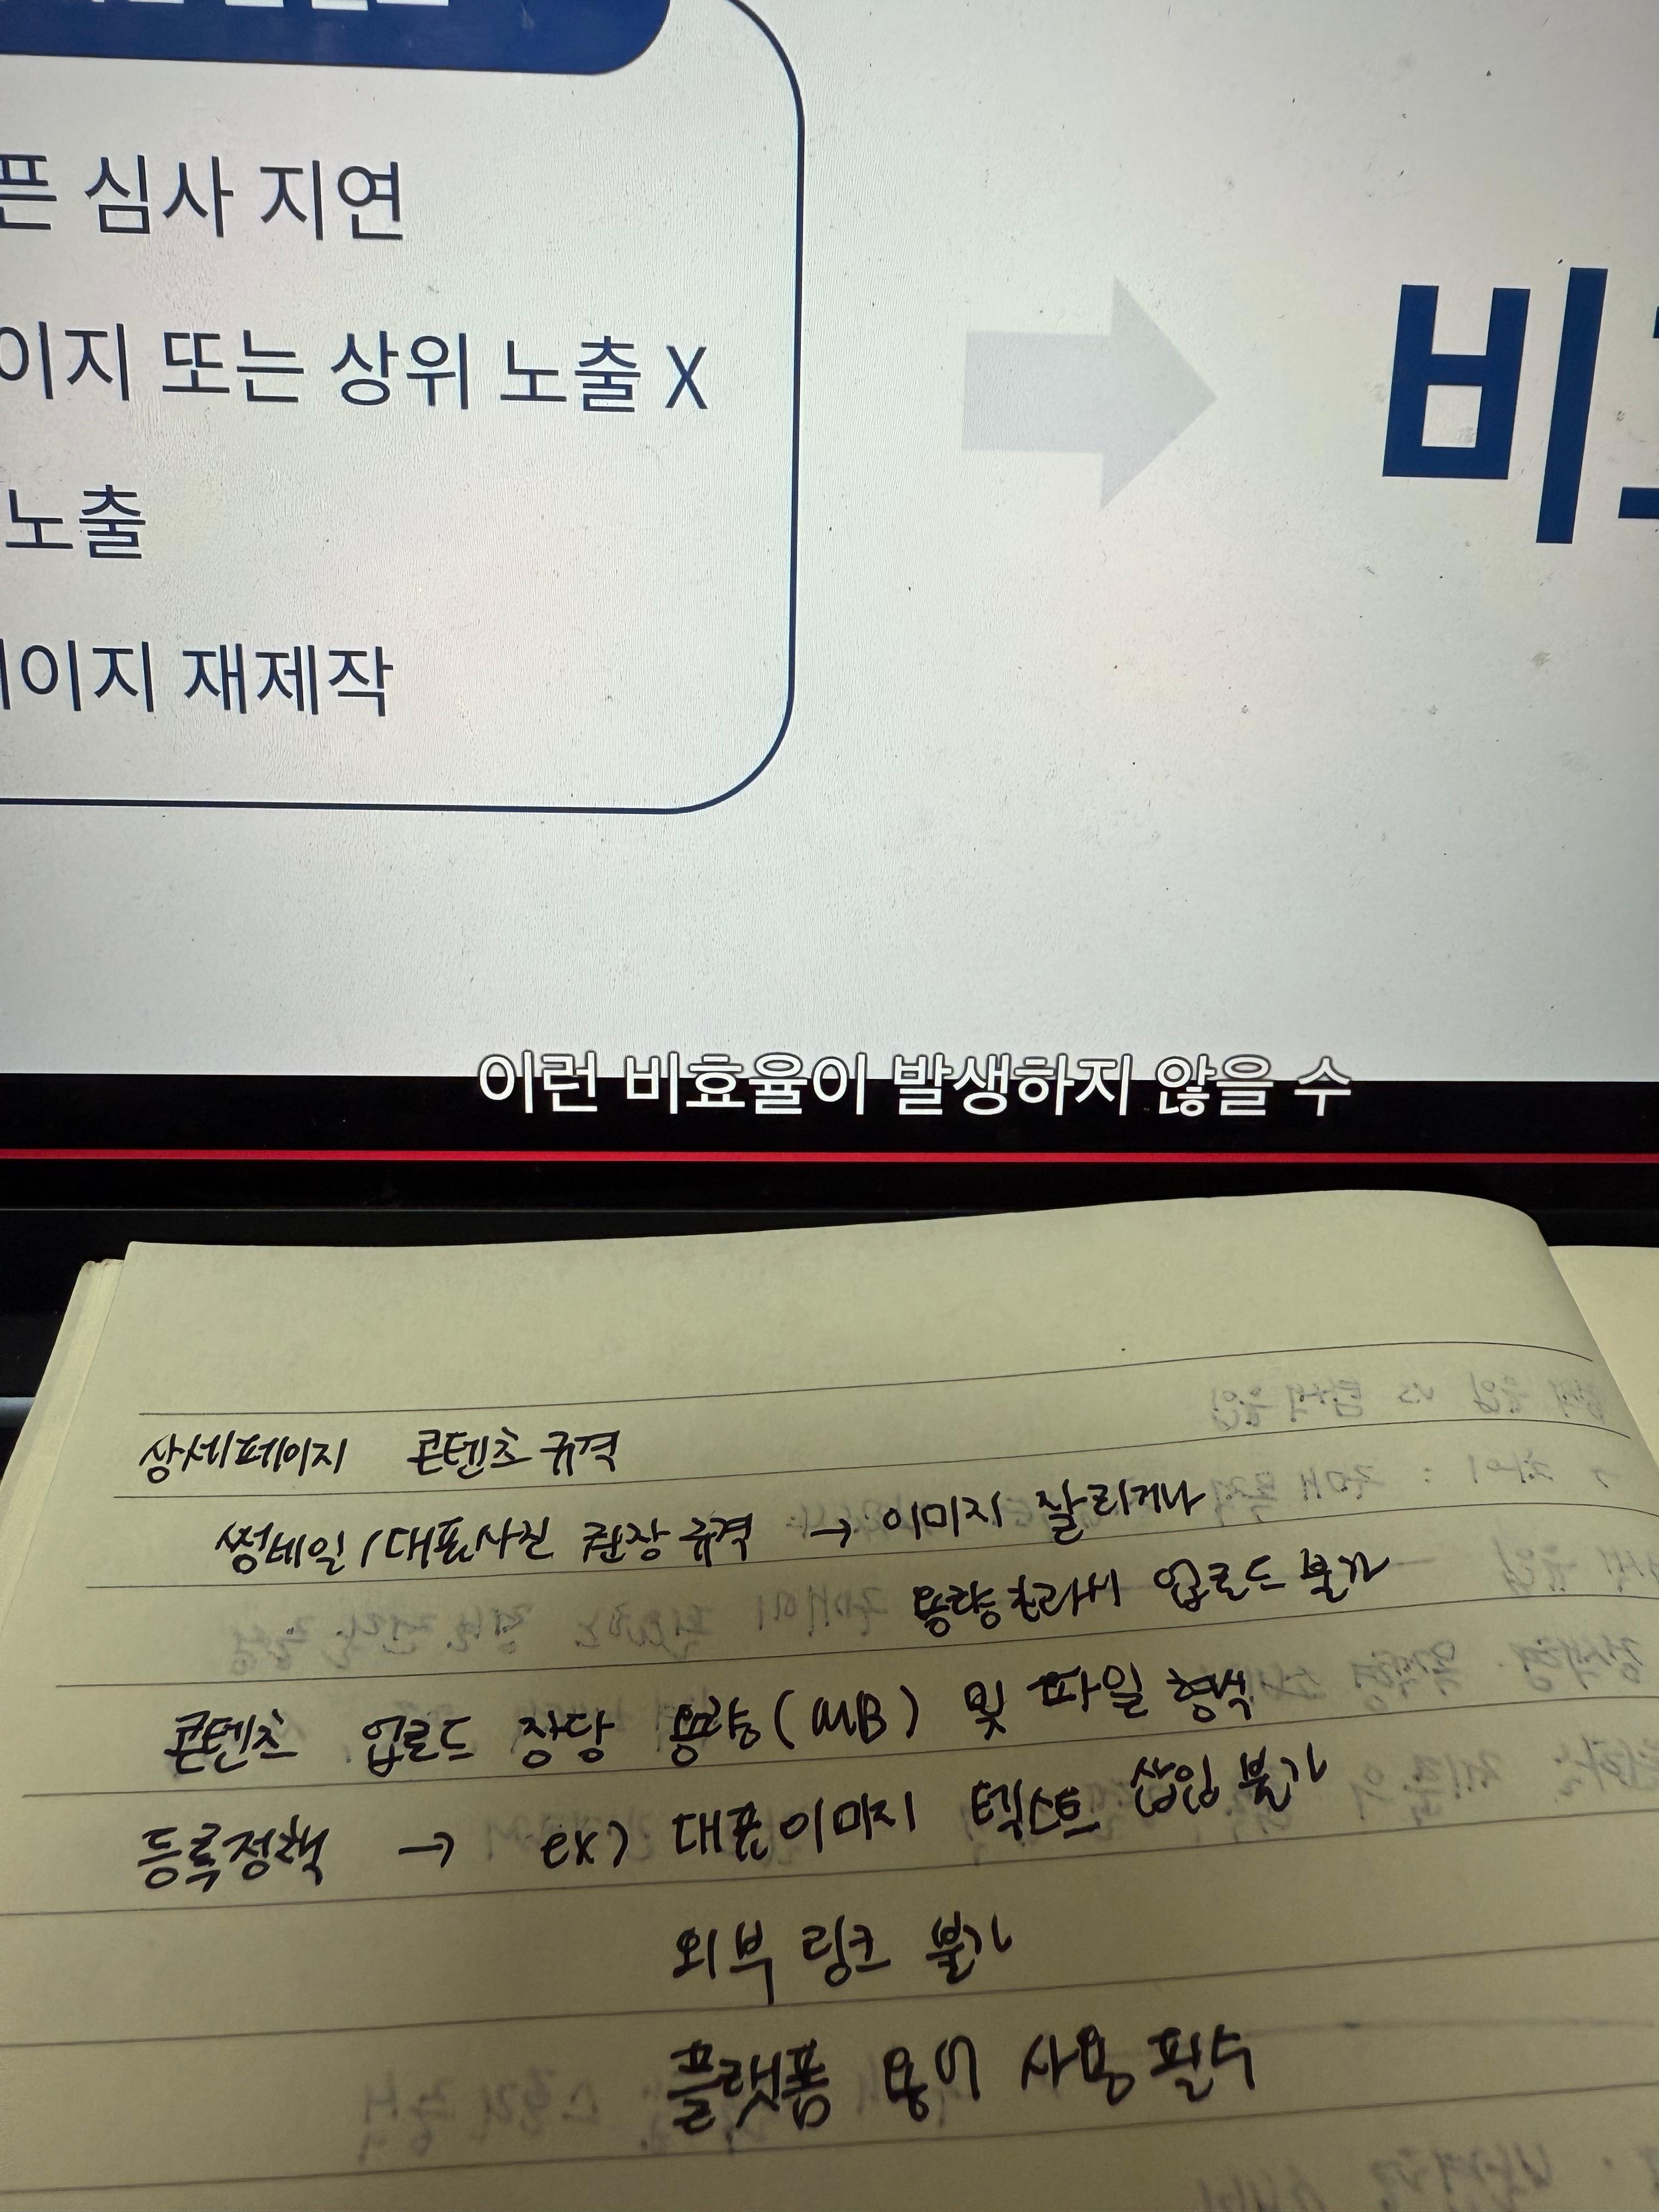 픈 심사 지연
이지 또는 상위 노출 X
노출
이지 재제작
이런 비효율이 발생하지 않을 수
상세페이지 콘텐츠 규격
썸네일/대표사진 권장규격 → 이미지 잘리거나
용량초과시 업로드 불가
콘텐츠 업로드 장당 용량(MB) 및 파일 형식
등록정책 → ex) 대표이미지 텍스트 삽입 불가
외부 링크 불가
플랫폼 용어 사용 필수